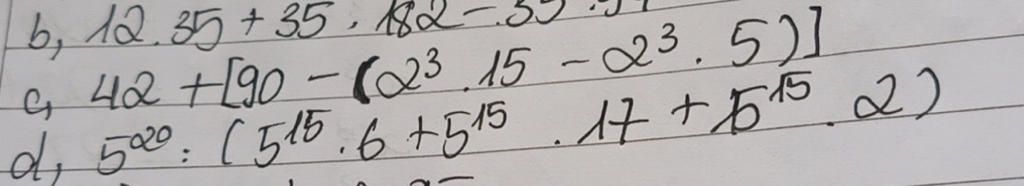 b, 12.35 + 35 . 182 - 35 .
c, 42 + [90 - (2³.15 - 2³.5)]
d, 5²⁰ : (5¹⁵.6 + 5¹⁵.17 + 5¹⁵.2)